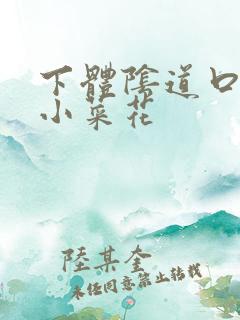 下體陰道口
小菜花
陸某奎
未经同意禁止转载